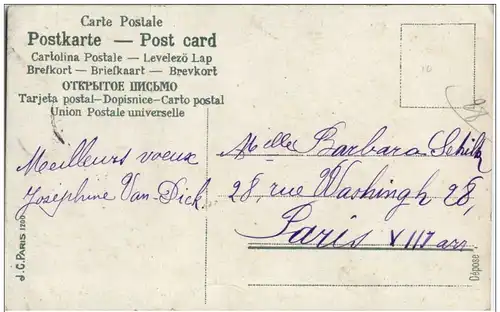 Carte Postale
Postkarte — Post card
Cartolina Postale — Levelező Lap
Brefkort — Briefkaart — Brevkort
ОТКРЫТОЕ ПИСЬМО
Tarjeta postal—Dopisnice—Carto postal
Union Postale universelle
Meilleurs voeux
Joséphine Van-Dick
Melle Barbara
28, rue Washingh 28,
Paris VIII arr.
J.C. PARIS 1200
Déposé